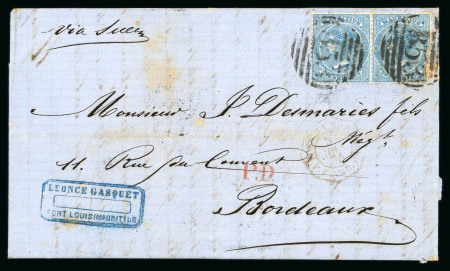 via Suez
B53
B53
Monsieur J. Desmaries fils
Négt.
11. Rue du Couvent
P.D
LEONCE GASQUET
PORT LOUIS MAURITIUS
Bordeaux